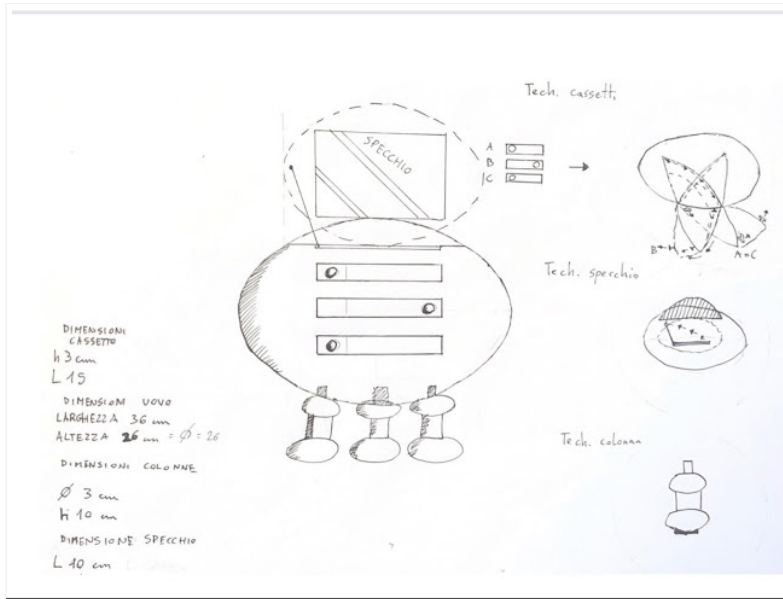 Tech. cassetti
SPECCHIO
A
B
C
B
A=C
Tech. specchio
DIMENSIONI
CASSETTO
h 3 cm
L 15
DIMENSIONI UOVO
LARGHEZZA 36 cm
ALTEZZA 26 cm = Ø = 26
DIMENSIONI COLONNE
Ø 3 cm
h 10 cm
DIMENSIONE SPECCHIO
L 10 cm
Tech. colonna